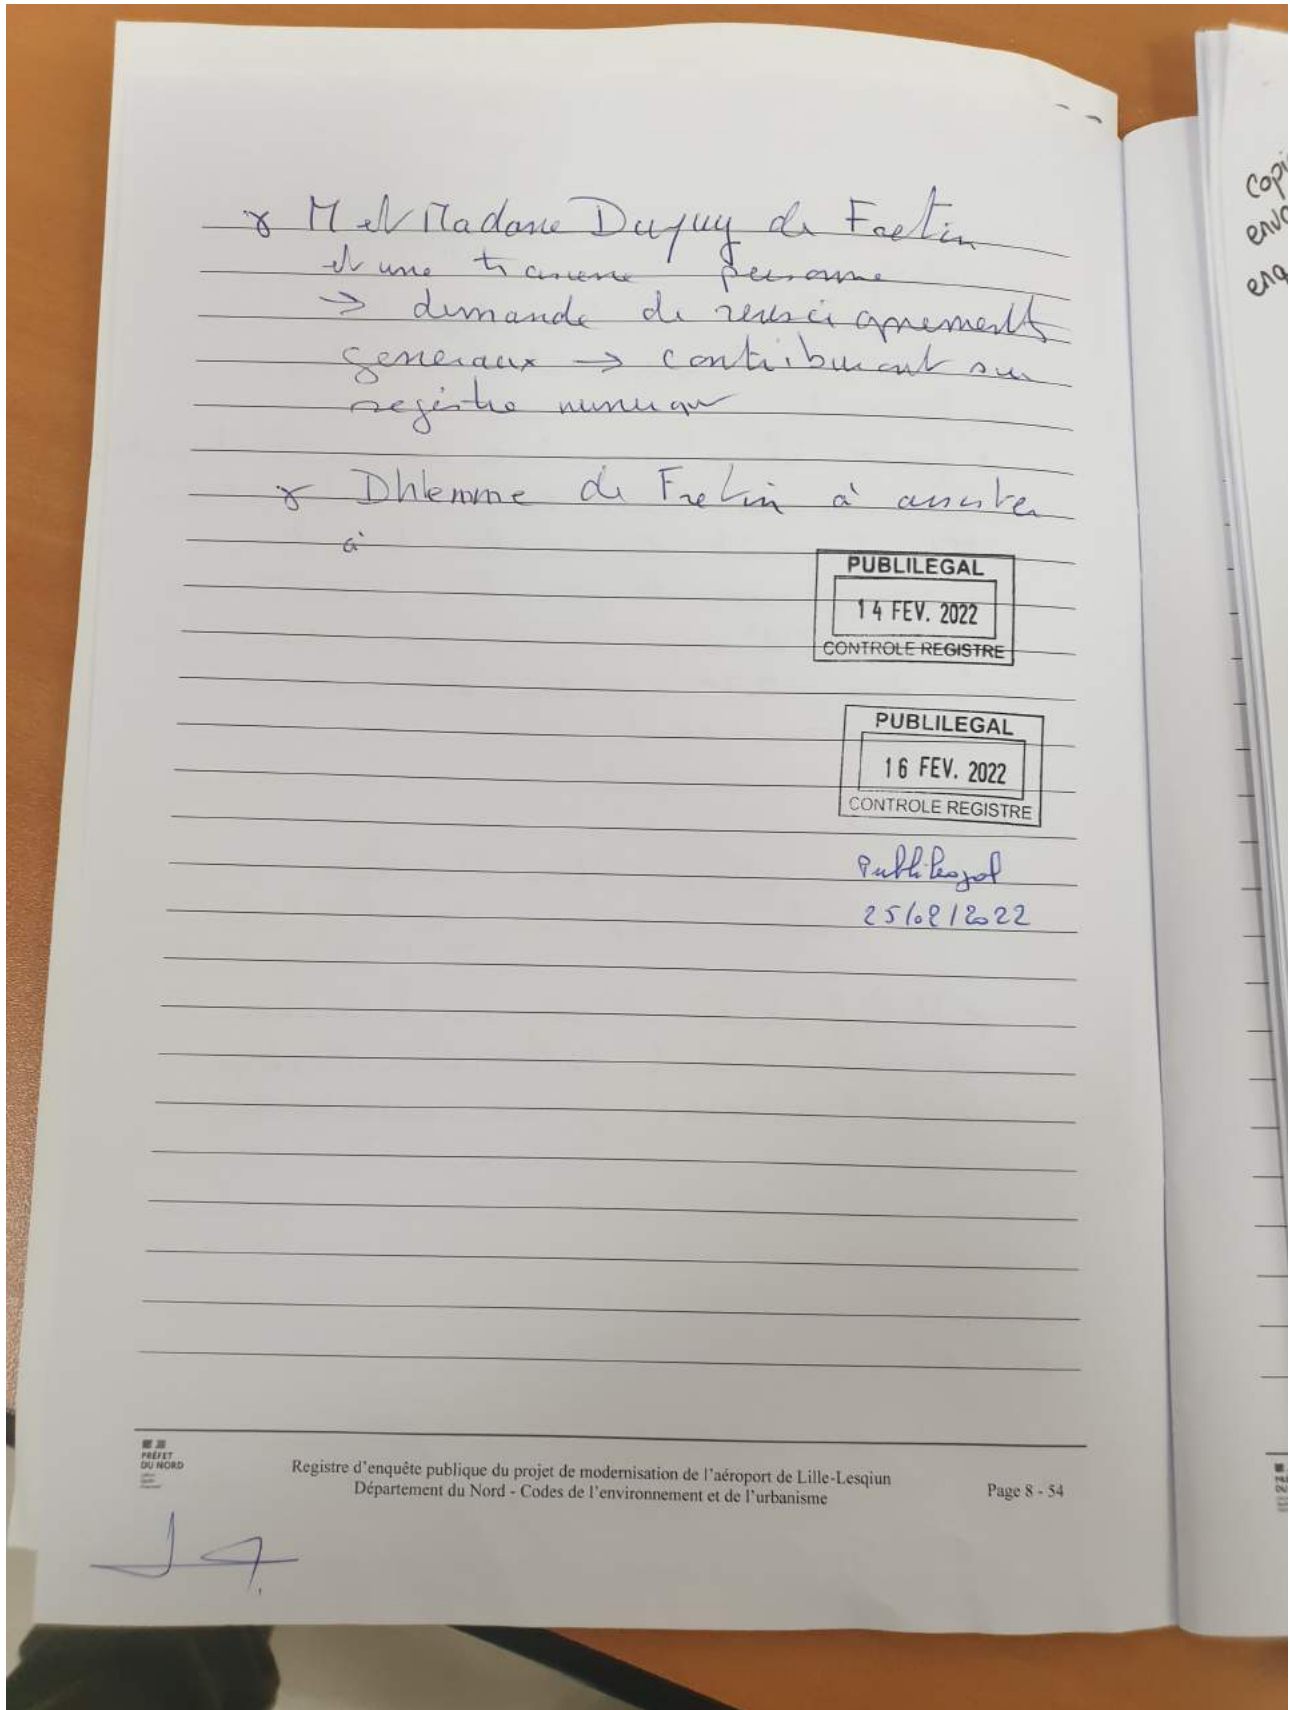 M et Madame Dupuy de Fretin
et une troisieme personne
→ demande de renseignements
generaux → contribuant sur
registre numerique
Dhlemme de Fretin à assister
à
PUBLILEGAL
14 FEV. 2022
CONTROLE REGISTRE
PUBLILEGAL
16 FEV. 2022
CONTROLE REGISTRE
Publilegal
25/02/2022
PRÉFET
DU NORD
Registre d'enquête publique du projet de modernisation de l'aéroport de Lille-Lesqiun
Département du Nord - Codes de l'environnement et de l'urbanisme
Page 8 - 54